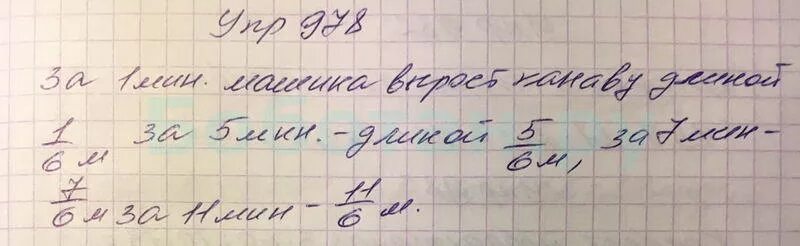 Упр 978
За 1 мин. машина вырост канаву длиной
1/6 м за 5 мин. - длиной 5/6 м, за 7 мин -
7/6 м за 11 мин - 11/6 м.